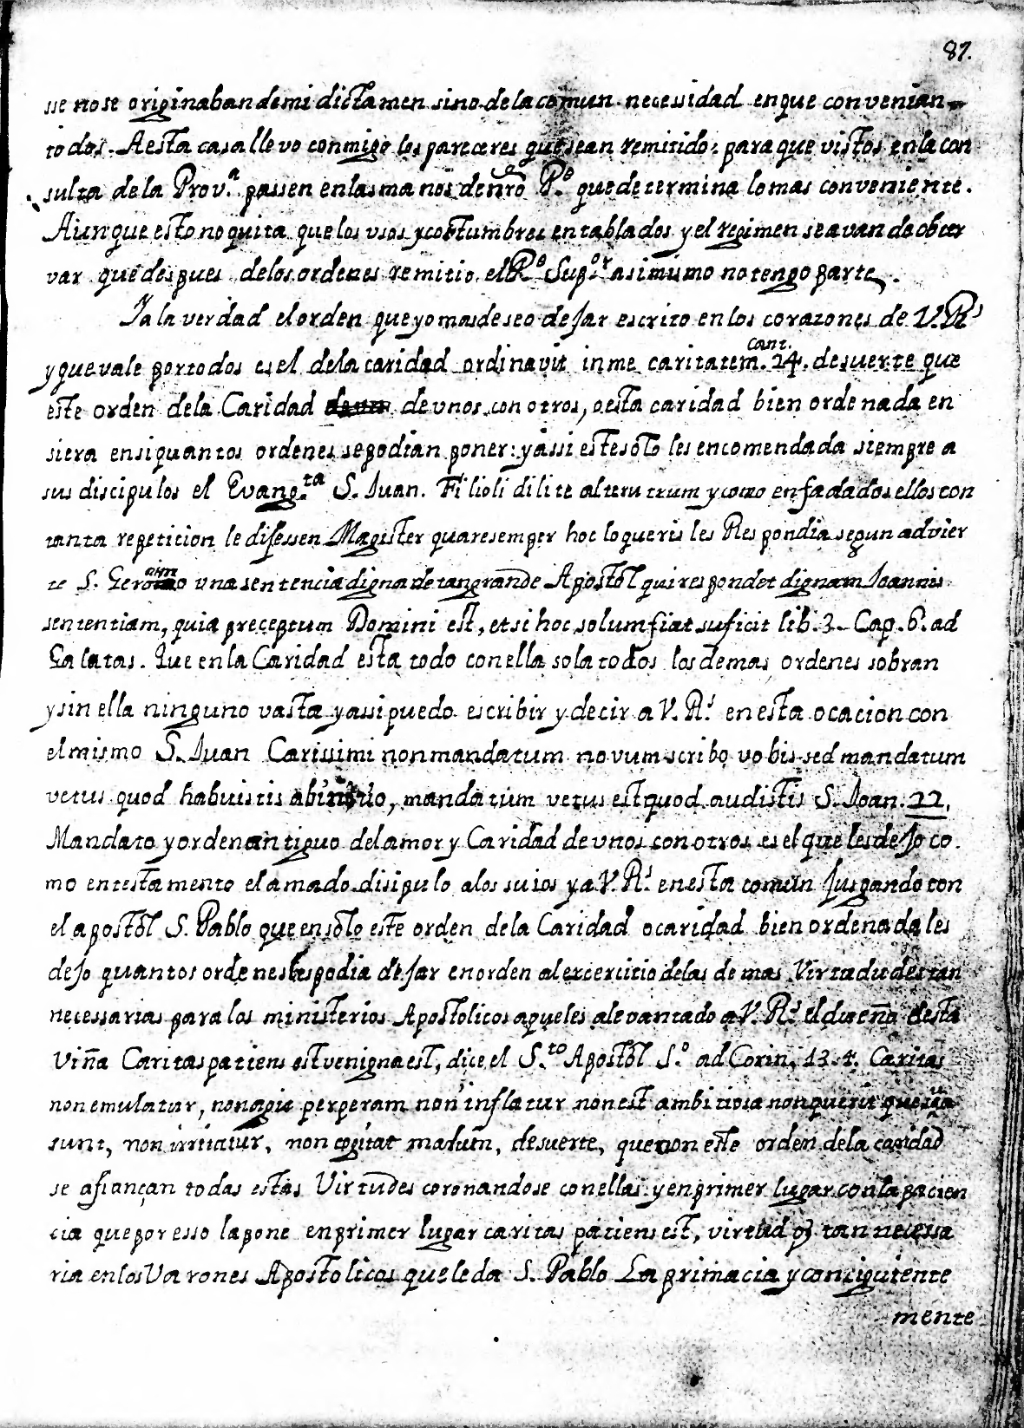 87.
sse no se originaban de mi dictamen sino de la comun necessidad en que convenian
todos. A esta casa llevo conmigo los pareceres que sean remitido: para que vistos en la con
sulta de la Prov.ª passen en las manos de nrõ P.º que determina lo mas conveniente.
Aunque esto no quita que los usos y costumbres entablados y el regimen se avan de obcer
var que despues de los ordenes remitio el R.º Sup.or asimismo no tengo parte.
Ya la verdad el orden que yo mas deseo dejar escrito en los corazones de V. R.s
y que vale por todos es el de la caridad ordinavit in me caritatem. cant. 24. de suerte que
este orden de la Caridad de unos con otros, o esta caridad bien ordenada en
siera en si quantos ordenes se podian poner: y assi este solo les encomendada siempre a
sus discipulos el Evang.ta S. Juan. Filioli dilite alterutrum y como enfadados ellos con
tanta repeticion le dijessen Magister quare semper hoc loqueris les Respondia segun advier
te S. Geronimo una sentencia digna de tan grande Apostol qui respondet dignam Joannis
sententiam, quia preceptum Domini est, et si hoc solum fiat suficit lib. 3. Cap. 6. ad
Galatas. Que en la Caridad esta todo con ella sola todos los demas ordenes sobran
y sin ella ninguno vasta y assi puedo escribir y decir a V. R.s en esta ocacion con
el mismo S. Juan Carissimi non mandatum novum scribo vobis sed mandatum
vetus quod habuistis abinitio, mandatum vetus est quod audistis S. Joan. 22.
Mandato y orden antiguo del amor y Caridad de unos con otros es el que les dejo co
mo en testamento el amado disipulo a los suios y a V. R.s en esta comun Jusgando con
el apostol S. Pablo que en solo este orden de la Caridad o caridad bien ordenada les
dejo quantos ordenes les podia dejar en orden al excercitio de las demas Virtududes tan
necessarias para los ministerios Apostolicos aque les a levantado a V. R.s el dueño desta
Viña Caritas patiens est venigna est, dice el S.to Apostol S.º ad Corin. 13. 4. Caritas
non emulatur, non agit perperam non inflatur non est ambitiosa non querit que sua
sunt, non irritatur, non cogitat malum, de suerte, que con este orden de la caridad
se afiançan todas estas Virtudes coronandose con ellas: y en primer lugar con la pacien
cia que por esso la pone en primer lugar caritas patiens est, virtud tan necessa
ria en los Varones Apostolicos que le da S. Pablo La primacia y conziguiente
mente